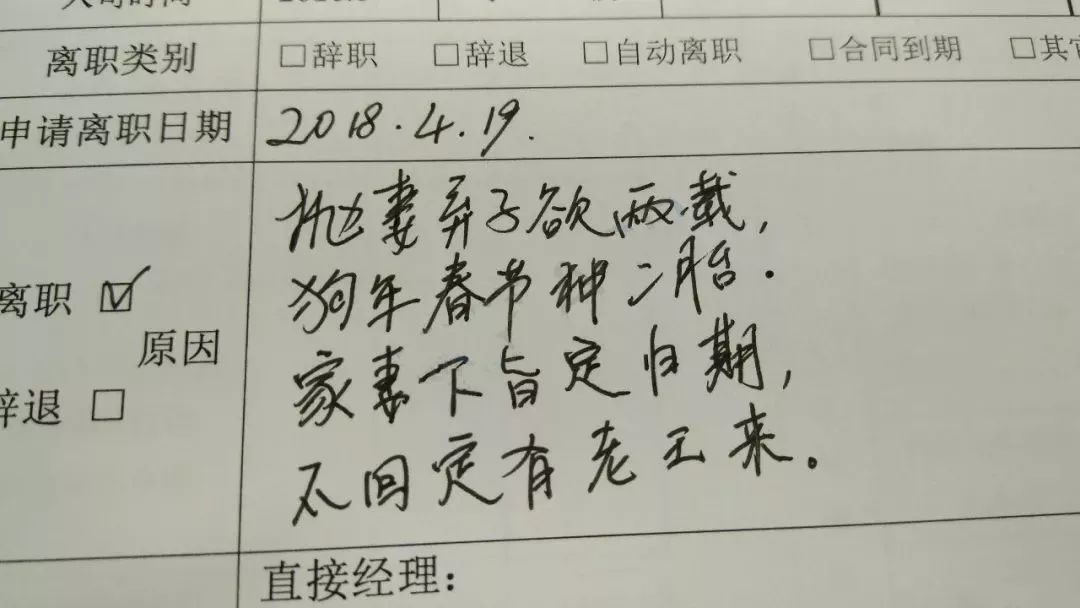 离职类别 □辞职 □辞退 □自动离职 □合同到期 □其它
申请离职日期 2018.4.19.
抛妻弃子欲两载，
狗年春节种二胎．
离职 ☑
原因
家妻下旨定归期，
辞退 □
不回定有老王来。
直接经理：